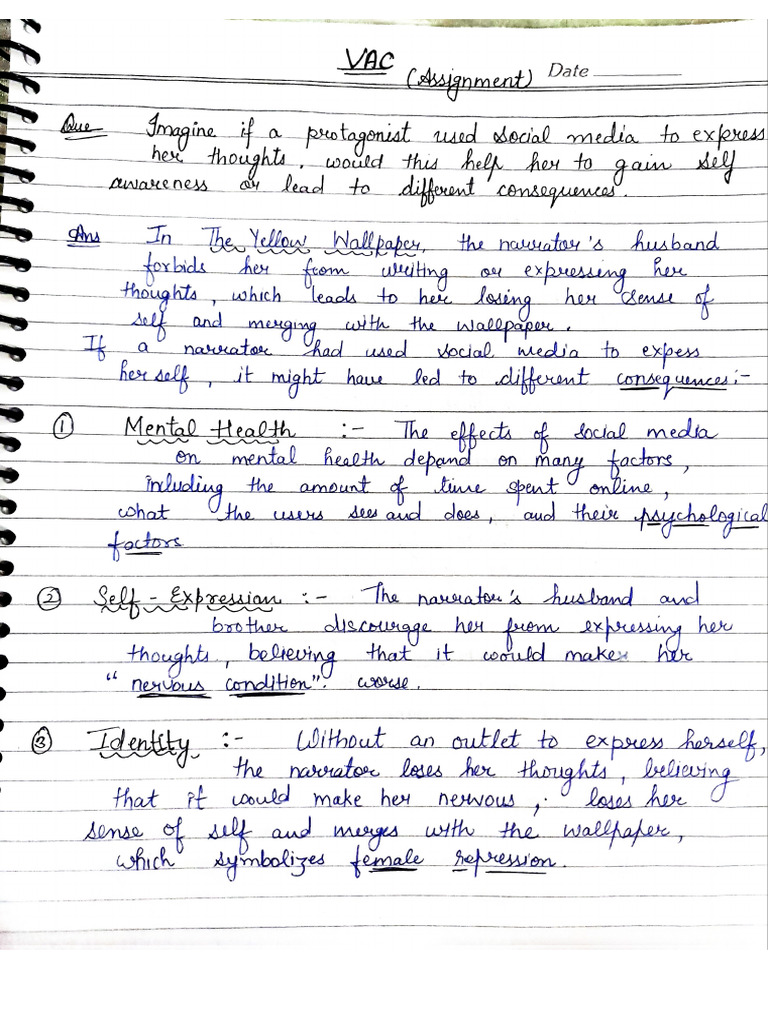 VAC
(Assignment) Date
Que Imagine if a protagonist used social media to express
her thoughts, would this help her to gain self
awareness or lead to different consequences.
Ans In The Yellow Wallpaper, the narrator's husband
forbids her from writing or expressing her
thoughts, which leads to her losing her sense of
self and merging with the wallpaper.
If a narrator had used social media to expess
herself, it might have led to different consequences:-
① Mental Health :- The effects of social media
on mental health depand on many factors,
including the amount of time spent online,
what the users sees and does, and their psychological
factors
② Self-Expression :- The narrator's husband and
brother discourage her from expressing her
thoughts, believing that it would make her
"nervous condition". worse.
③ Identity :- Without an outlet to express herself,
the narrator loses her thoughts, believing
that it would make her nervous, loses her
sense of self and merges with the wallpaper,
which symbolizes female repression.